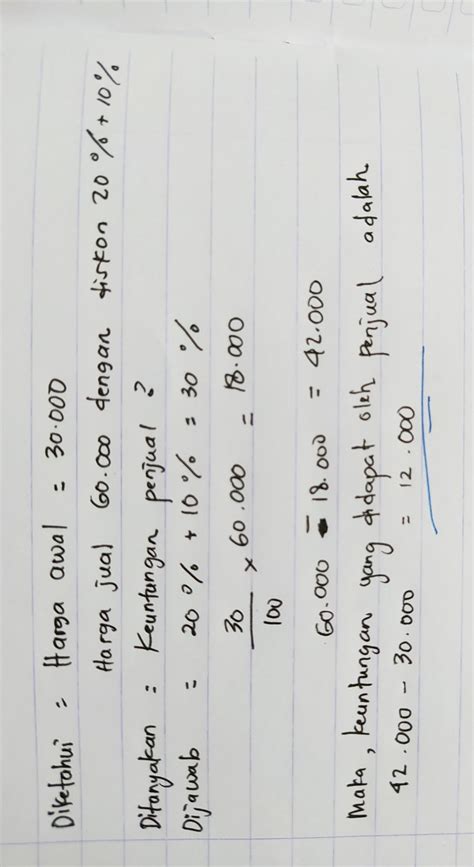 Diketahui = Harga awal = 30.000
Harga jual 60.000 dengan diskon 20% + 10%
Ditanyakan : Keuntungan penjual ?
Dijawab = 20% + 10% = 30%
30/100 × 60.000 = 18.000
60.000 - 18.000 = 42.000
Maka, keuntungan yang didapat oleh penjual adalah
42.000 - 30.000 = 12.000